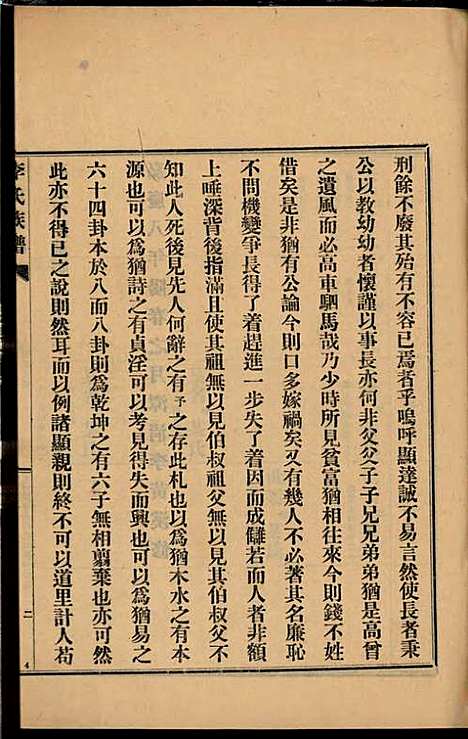 刑餘不廢其殆有不容已焉者乎嗚呼顯達誠不易言然使長者秉
公以教幼幼者懷謹以事長亦何非父父子子兄兄弟弟猶是高曾
之遺風而必高車駟馬哉乃少時所見貧富猶相往來今則錢不姓
借矣是非猶有公論今則口多嫁禍矣又有幾人不必著其名廉恥
不問機變爭長得了一着趕進一步失了一着因而成讎若而人者非額
上唾深背後指滿且使其祖無以見伯叔祖父無以見其伯叔父不
知此人死後見先人何辭之有予之存此札也以為猶木水之有本
源也可以為猶詩之有貞淫可以考見得失而興也可以為猶易之
六十四卦本於八而八卦則為乾坤之有六子無相翦棄也亦可然
此亦不得已之說則然耳而以例諸顯親則終不可以道里計人苟
李氏族譜
二
4